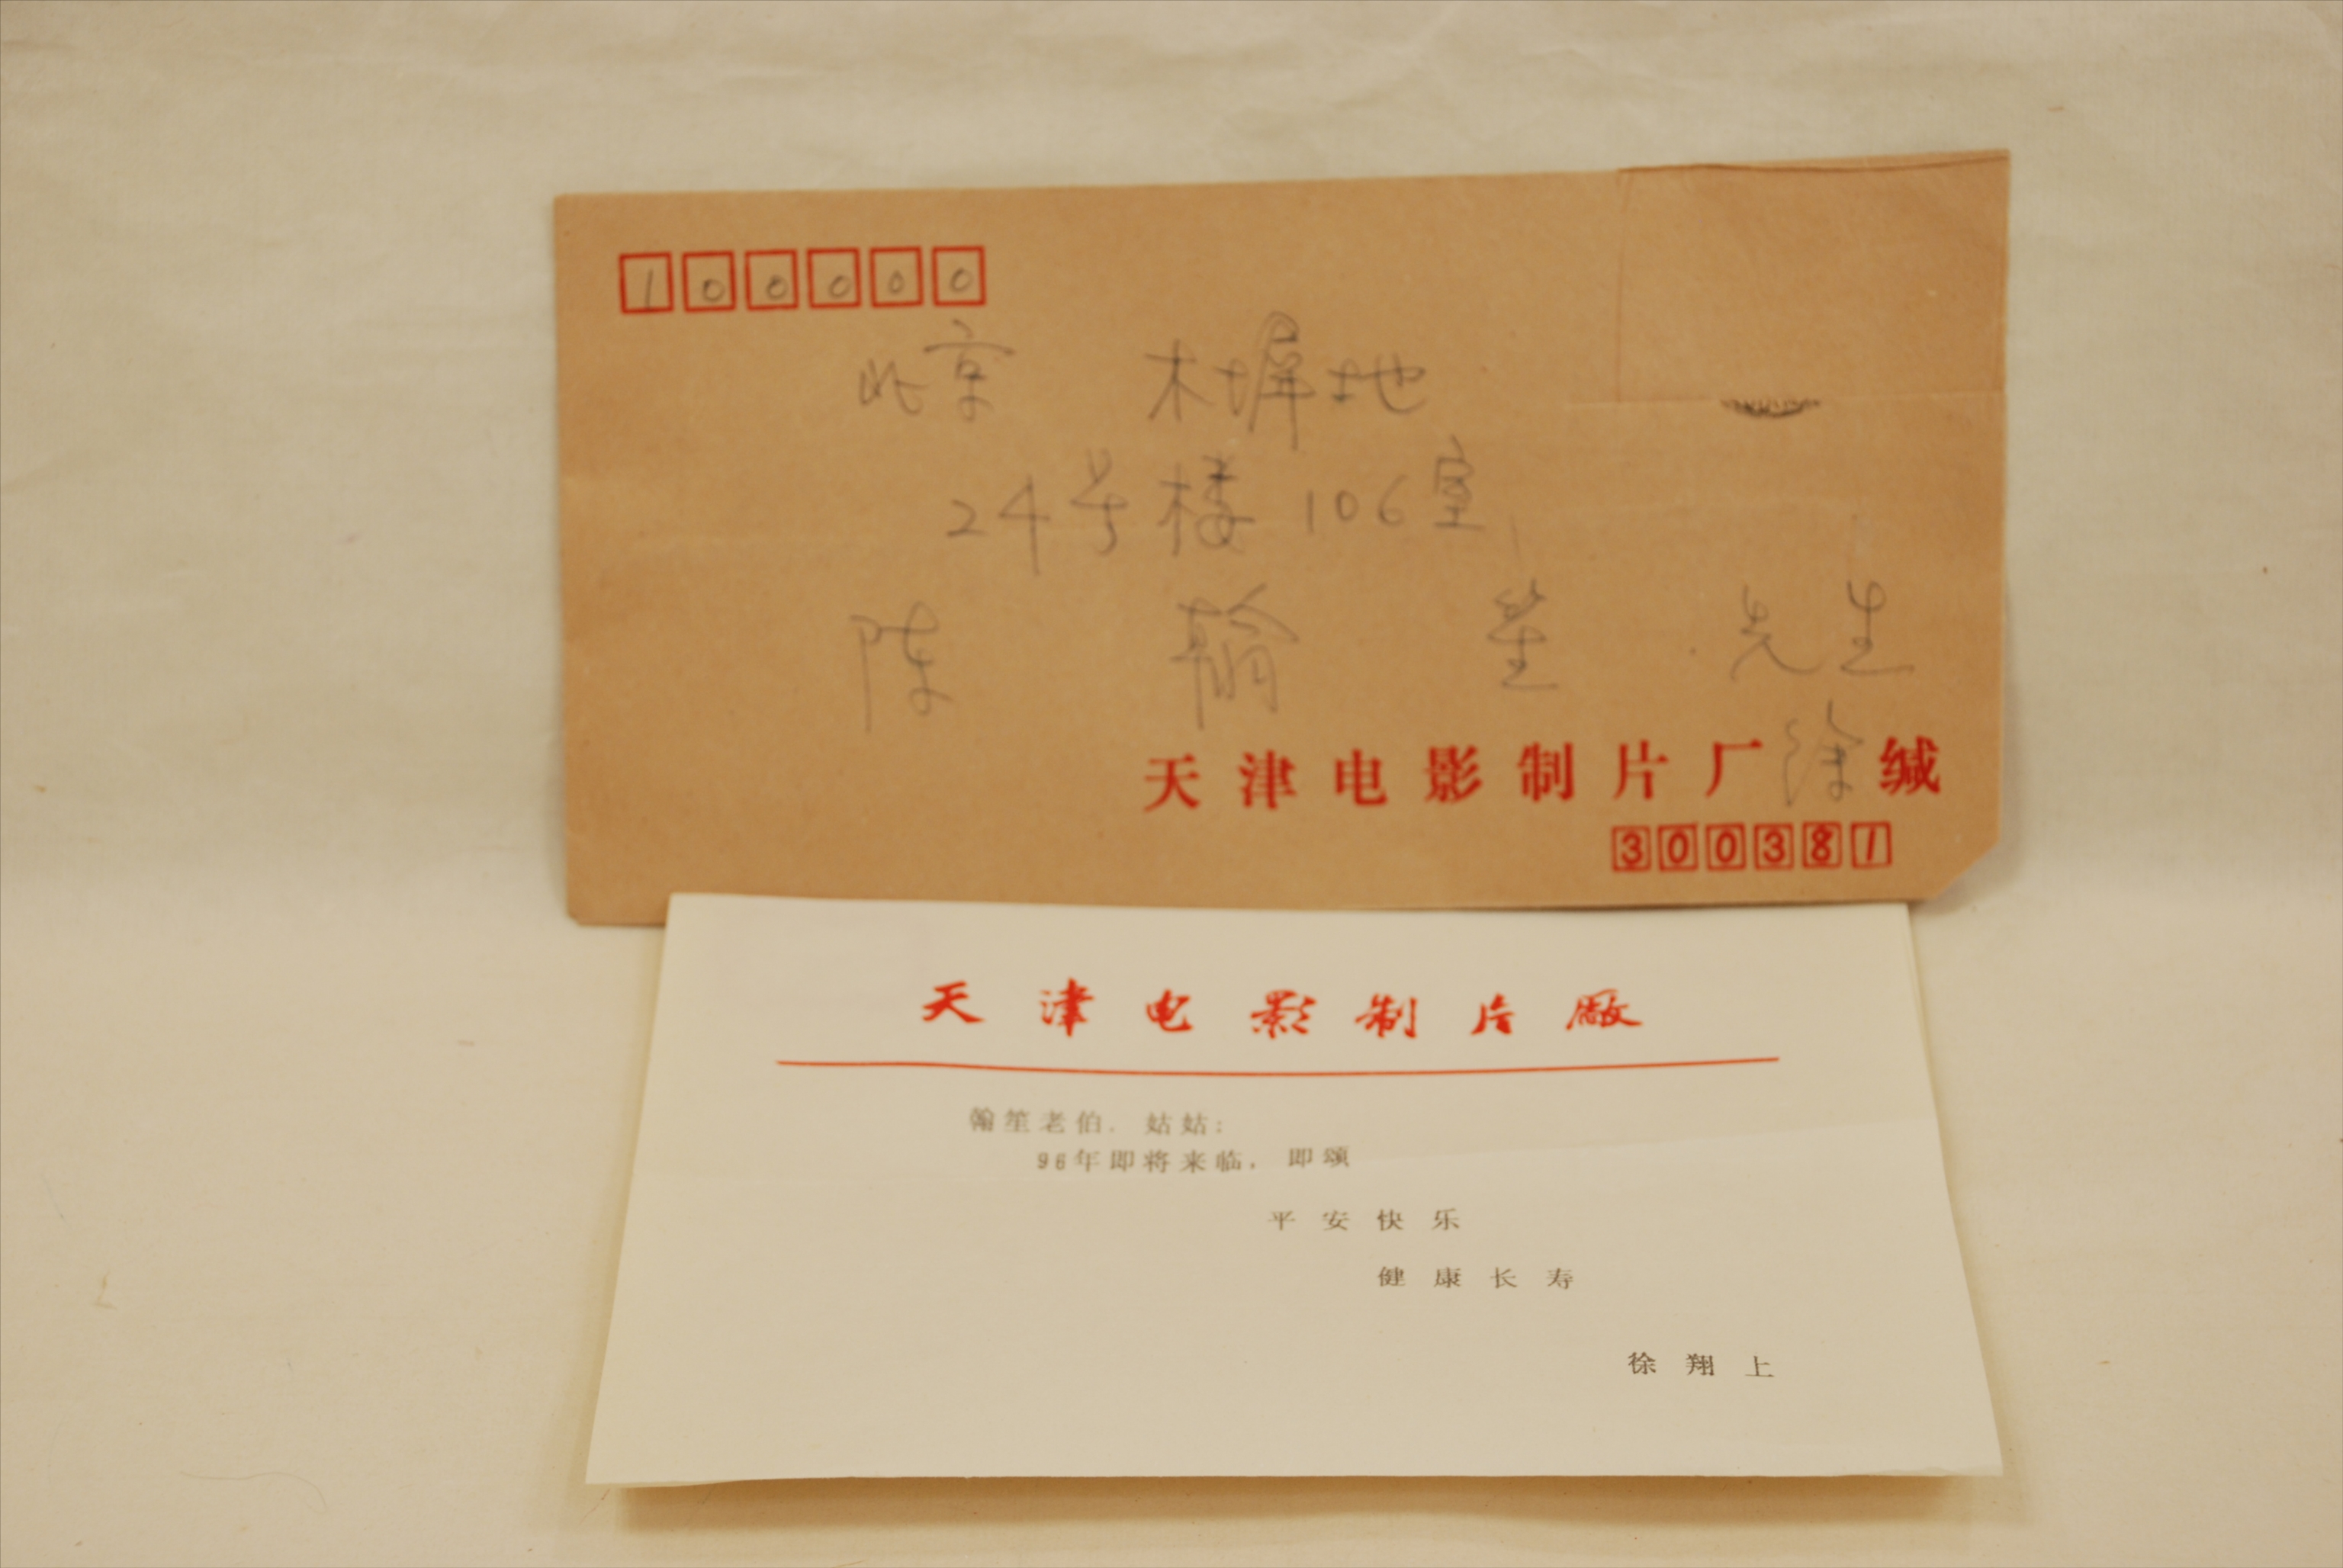 100000
北京 木墀地
24号楼106室
陈翰笙 先生
天津电影制片厂徐缄
300381
天津电影制片廠
翰笙老伯、姑姑:
96年即将来临,即颂
平安快乐
健康长寿
徐翔上